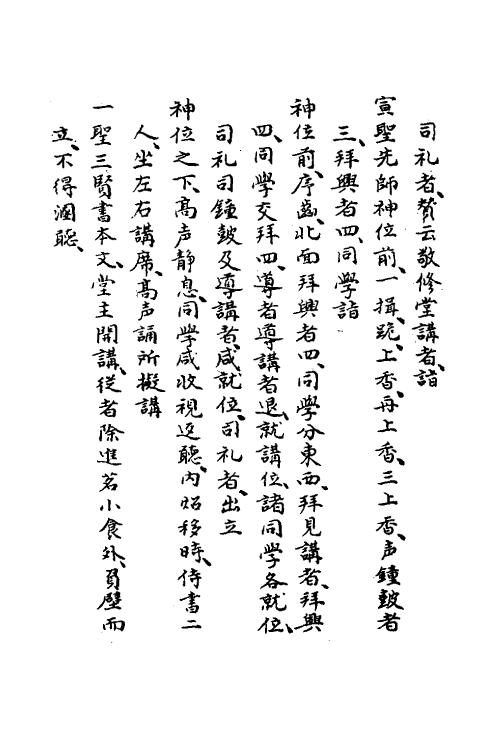 司礼者、赞云敬修堂講者、詣
寅聖先師神位前、一揖、跪、上香、再上香、三上香、声鍾皷者
三、拜興者四、同學詣
神位前、序齒、北面拜興者四、同學分東西、拜見講者、拜興
四、同學交拜四、導者導講者退、就講位、諸同學各就位、
司礼司鍾皷及導講者、咸就位、司礼者、出立
神位之下、高声静息、同學咸收視返聽、内炤移時、侍書二
人、坐左右講席、高声誦所擬講
一聖三賢書本文、堂主開講、從者除進茗小食外、負壁而
立、不得溷聽、